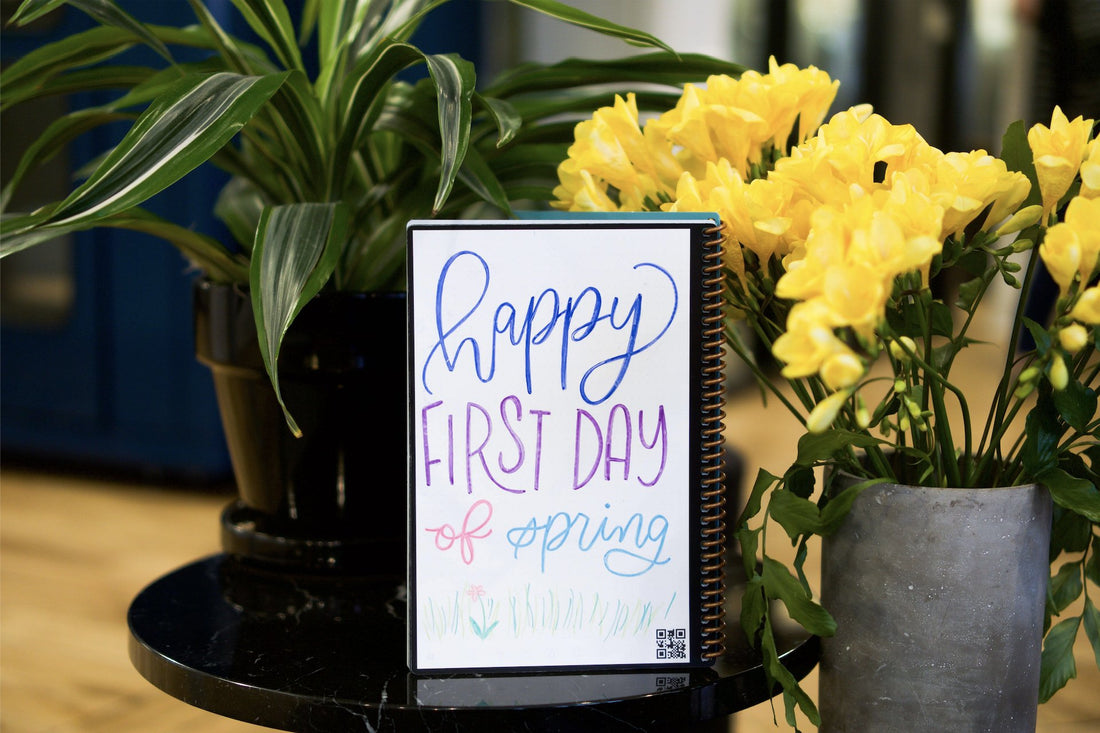 happy
FIRST DAY
of spring